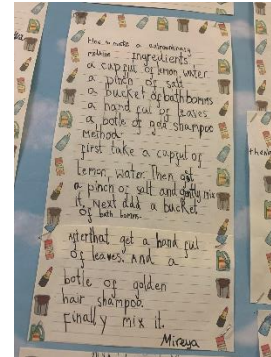 How to make a
ingredients
a capful of lemon water
a pinch of salt
a bucket of bath bomms
a hand ful of leaves
a botle of shampoo
Method
first take a capful of
lemon, water. Then get
a pinch of salt and gently mix
it, Next add a bucket
of bath bomms.
After that get a hand ful
of leaves. And a
botle of golden
hair shampoo.
Finally mix it.
Mireya